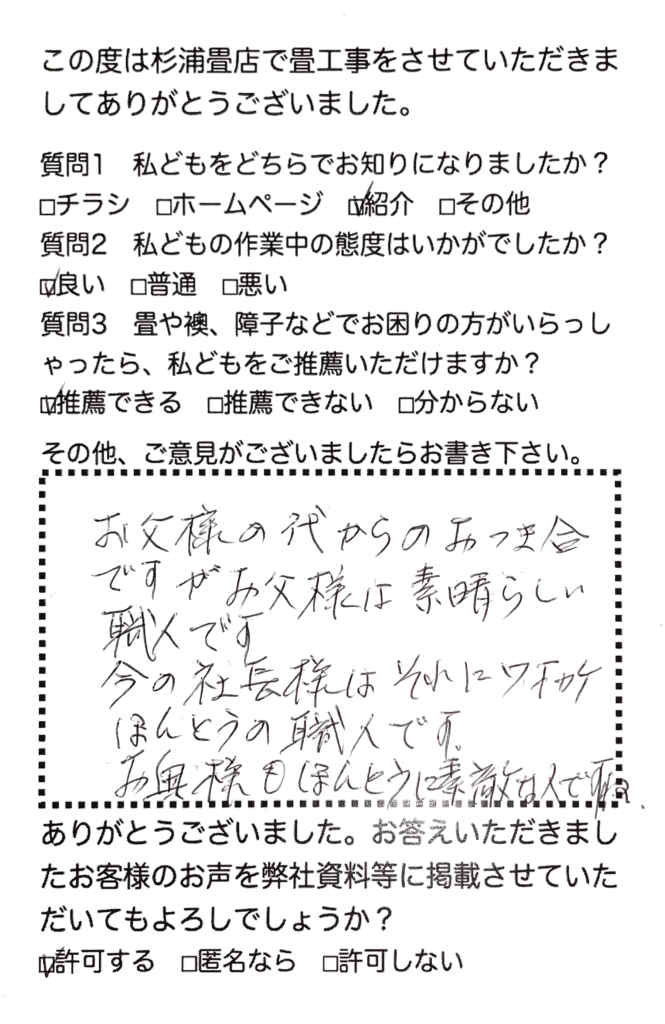 この度は杉浦畳店で畳工事をさせていただきま
してありがとうございました。
質問1 私どもをどちらでお知りになりましたか？
□チラシ □ホームページ ☑紹介 □その他
質問2 私どもの作業中の態度はいかがでしたか？
☑良い □普通 □悪い
質問3 畳や襖、障子などでお困りの方がいらっし
ゃったら、私どもをご推薦いただけますか？
☑推薦できる □推薦できない □分からない
その他、ご意見がございましたらお書き下さい。
お父様の代からのおつき合
ですがお父様は素晴らしい
職人です
今の社長様はそれにワオカケ
ほんとうの職人です。
お奥様もほんとうに素敵な人ですね。
ありがとうございました。お答えいただきまし
たお客様のお声を弊社資料等に掲載させていた
だいてもよろしでしょうか？
☑許可する □匿名なら □許可しない